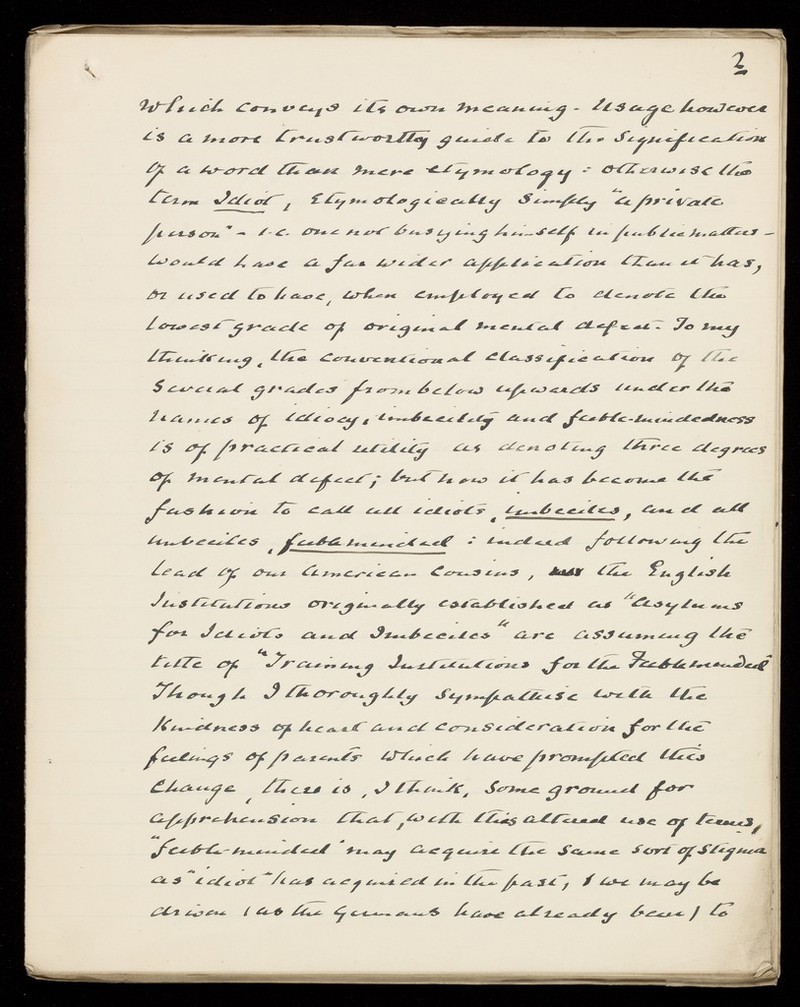 2
which conveys its own meaning - Usage however
is a more trustworthy guide to the signification
of a word than mere etymology : otherwise the
term Idiot, Etymologically simply "a private
person" - i.e. one not busying himself in public matters -
would have a far wider application than it has,
or used to have, when employed to denote the
lowest grade of original mental defect. To my
thinking, the conventional classification of the
several grades from below upwards under the
names of idiocy, imbecility and feeble-mindedness
is of practical utility as denoting three degrees
of mental defect; but now it has become the
fashion to call all idiots, imbeciles, and all
imbeciles, feebleminded : indeed following the
lead of our American Cousins, the English
Institutions originally established as "Asylums
for Idiots and Imbeciles" are assuming the
title of "Training Institutions for the Feebleminded"
Though I thoroughly sympathise with the
Kindness of heart and consideration for the
feelings of parents which have prompted this
Change, there is, I think, some ground for
apprehension that, with this altered use of terms,
"feeble-minded" may acquire the same sort of Stigma
as "idiot" has acquired in the past, & we may be
driven (as the Germans have already been) to